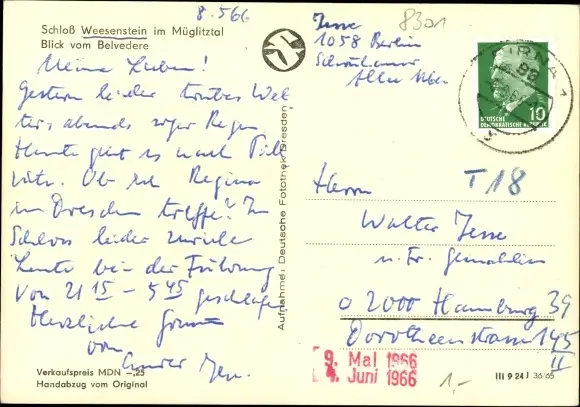 8.5.66
Schloß Weesenstein im Müglitztal
Blick vom Belvedere
Meine Lieben!
Gestern leider trübes Wet
ters abends sogar Regen.
Heute geht es nach Pill
nitz. Ob ich Regina
in Dresden treffe? Im
Schloss leider zuviele
Leute bei der Führung
Von 21 15 – 5 45 geschlafen
Herzliche Grüsse
von
Verkaufspreis MDN –,25
Handabzug vom Original
Aufnahme: Deutsche Fotothek Dresden
Jesse
1058 Berlin
Schönhauser
Allee
8301
PIRNA 1
DEUTSCHE
DEMOKRATISCHE REPUBLIK
10
T18
Herrn
Walter Jesse
u. Fr. Gemahlin
2000 Hamburg 39
Dorotheenstrasse 145
II
9. Mai 1966
4. Juni 1966
1,-
III 9 24 J 36/65